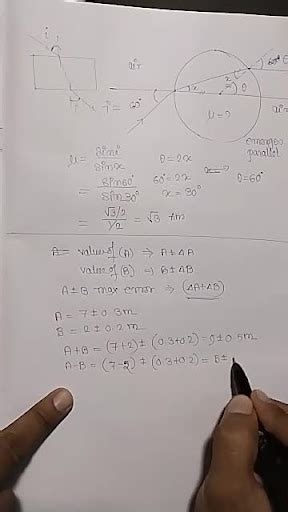 i
air
60°
x
x
2x
θ
60°
i = 60°
μ = ?
air
emerges
parallel
μ = sin i / sin x
θ = 2x
= sin60° / sin30°
60° = 2x
x = 30°
θ = 60°
= √3/2 / 1/2 = √3
A = value of (A) ⇒ A ± ΔA
value of (B) ⇒ B ± ΔB
A ± B max error ⇒ (ΔA+ΔB)
A = 7 ± 0.3 m
B = 2 ± 0.2 m
A+B = (7+2) ± (0.3+0.2) = 9 ± 0.5m
A-B = (7-2) ± (0.3+0.2) = 5 ±